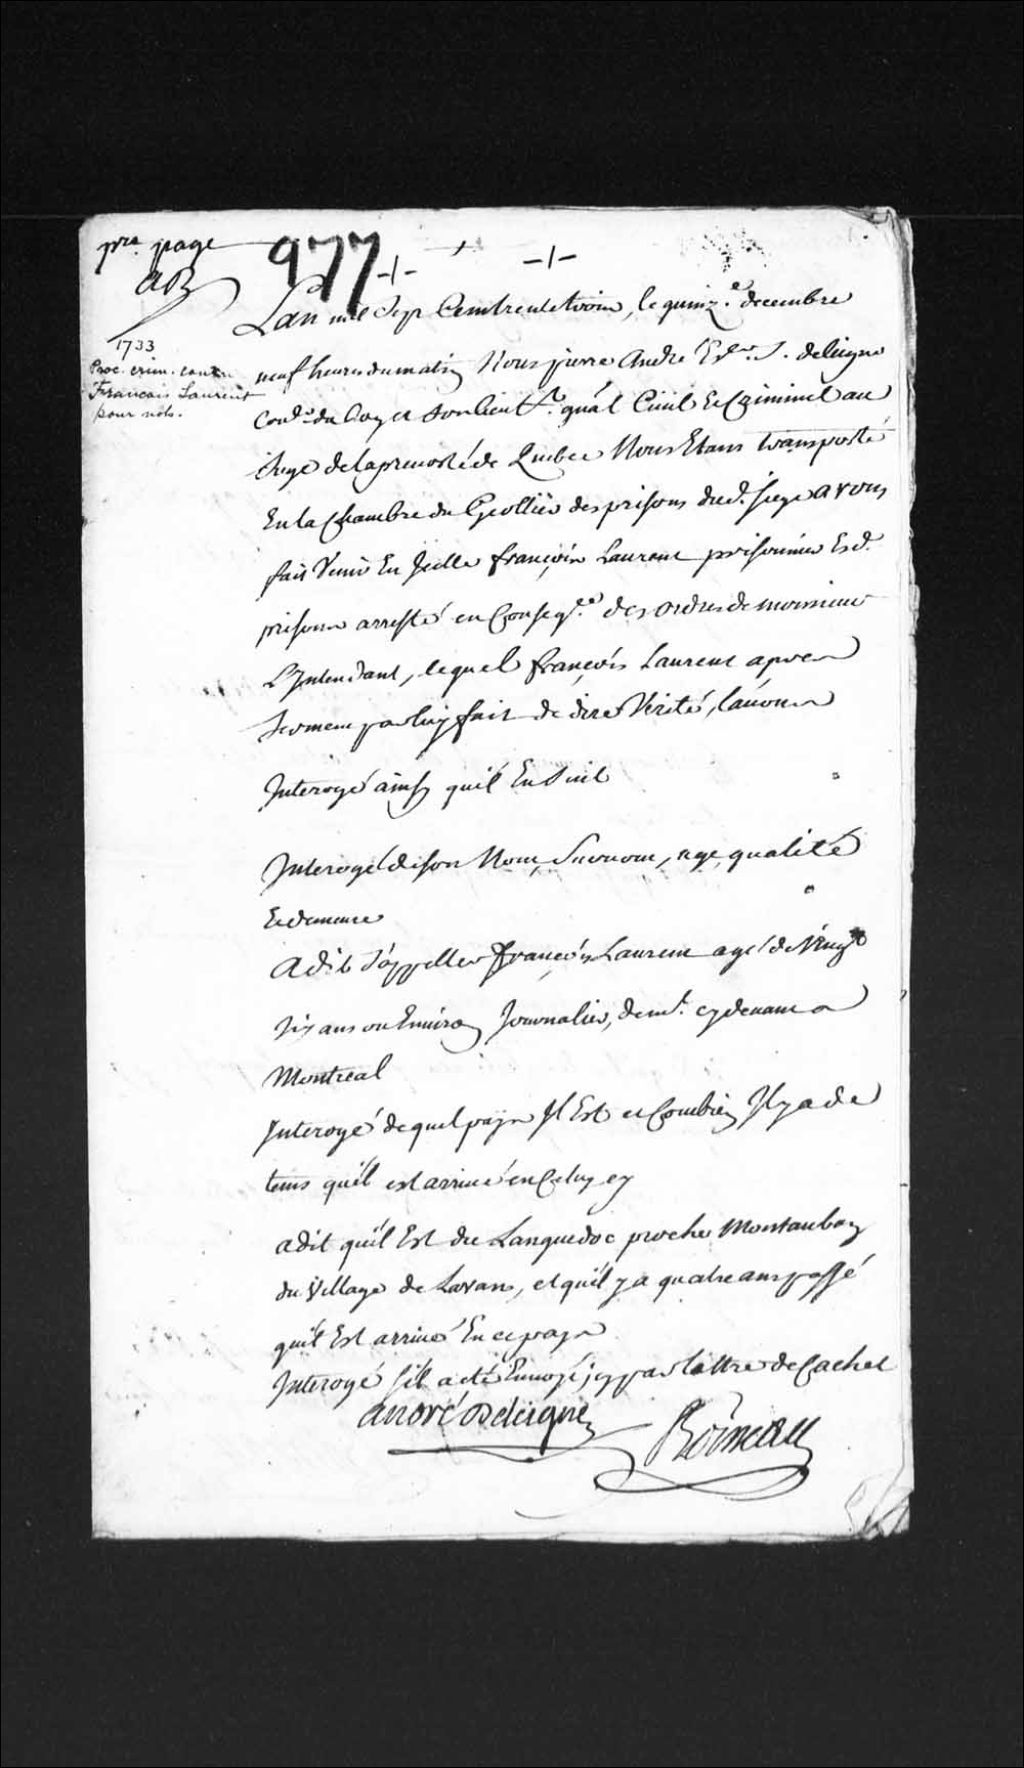 pre. page
977
1733
Proc. crim. contre
Francois Laurent
pour vols.
Lan mil Sept Cent trente trois, le quinz.e decembre
neuf heures du matin Nous pierre André Es.r S. deleigne
Con.er du Roy et son lieut.t gnál Civil Et Criminel au
siege de la prevosté de Quebec Nous Etans transporté
En la Chambre du Geollier des prisons dud. siege avons
fait Venir En Icelle françois Laurent prisonnier Esd.
prisons arresté en Conseq.ce des ordres de monsieur
L'Intendant, lequel françois Laurent apres
serment par luy fait de dire Verité, l'avons
Interogé ainsy quil En suit
Interogé de son Nom, Surnom, age, qualité
Et demeure
a dit s'appeller françois Laurent agé de Vingt
six ans ou Environ Journalier, dem.t cy devant a
Montreal
Interogé de quel pays Il Est et Combien Il y a de
tems qu'il est arrivé en Celuy cy
a dit qu'il Est du Languedoc proche Montauban
du Village de Lavans, et qu'il y a quatre ans passé
qu'il Est arrivé En ce pays
Interogé s'il a eté Envoyé icy par lettre de Cachet
André Deleigne Boisseau